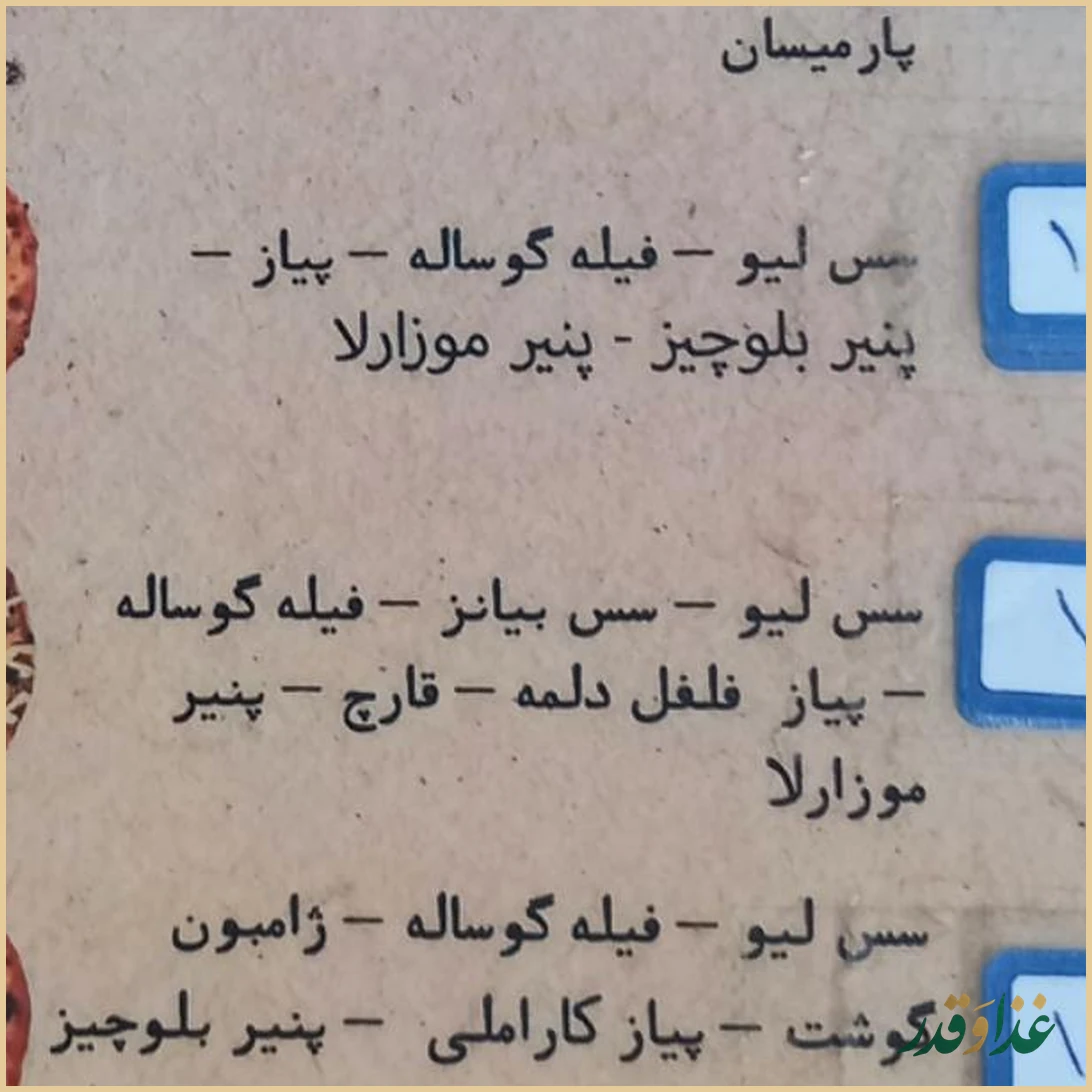 پارمیسان
سس لیو – فیله گوساله – پیاز –
پنیر بلوچیز - پنیر موزارلا
سس لیو – سس بیانز – فیله گوساله
– پیاز فلفل دلمه – قارچ – پنیر
موزارلا
سس لیو – فیله گوساله – ژامبون
گوشت – پیاز کاراملی – پنیر بلوچیز
غذا وَ قدر